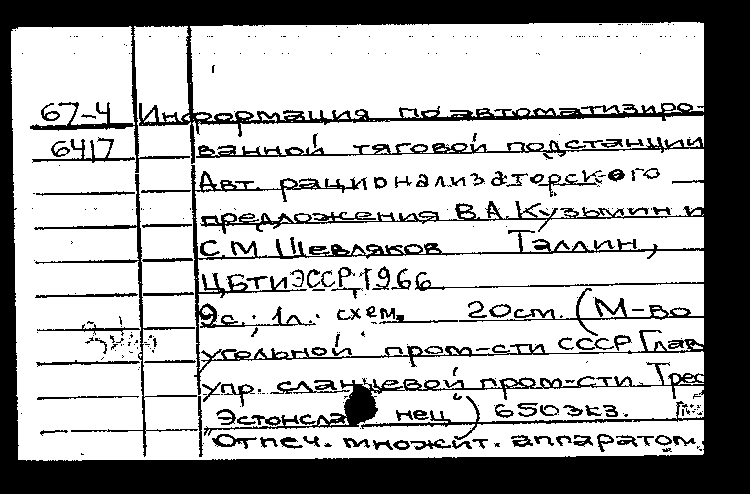 67-4 Информация по автоматизиро-
6417 ванной тяговой подстанции
Авт. рационализаторского
предложения В.А. Кузьмин и
С.М Шевляков Таллин,
ЦБТИ ЭССР, 1966
9с.; 1л. схем. 20см. (М-во
угольной пром-сти СССР. Глав
упр. сланцевой пром-сти. Трес
"Эстонсла нец") 650экз.
Отпеч. множит. аппаратом.